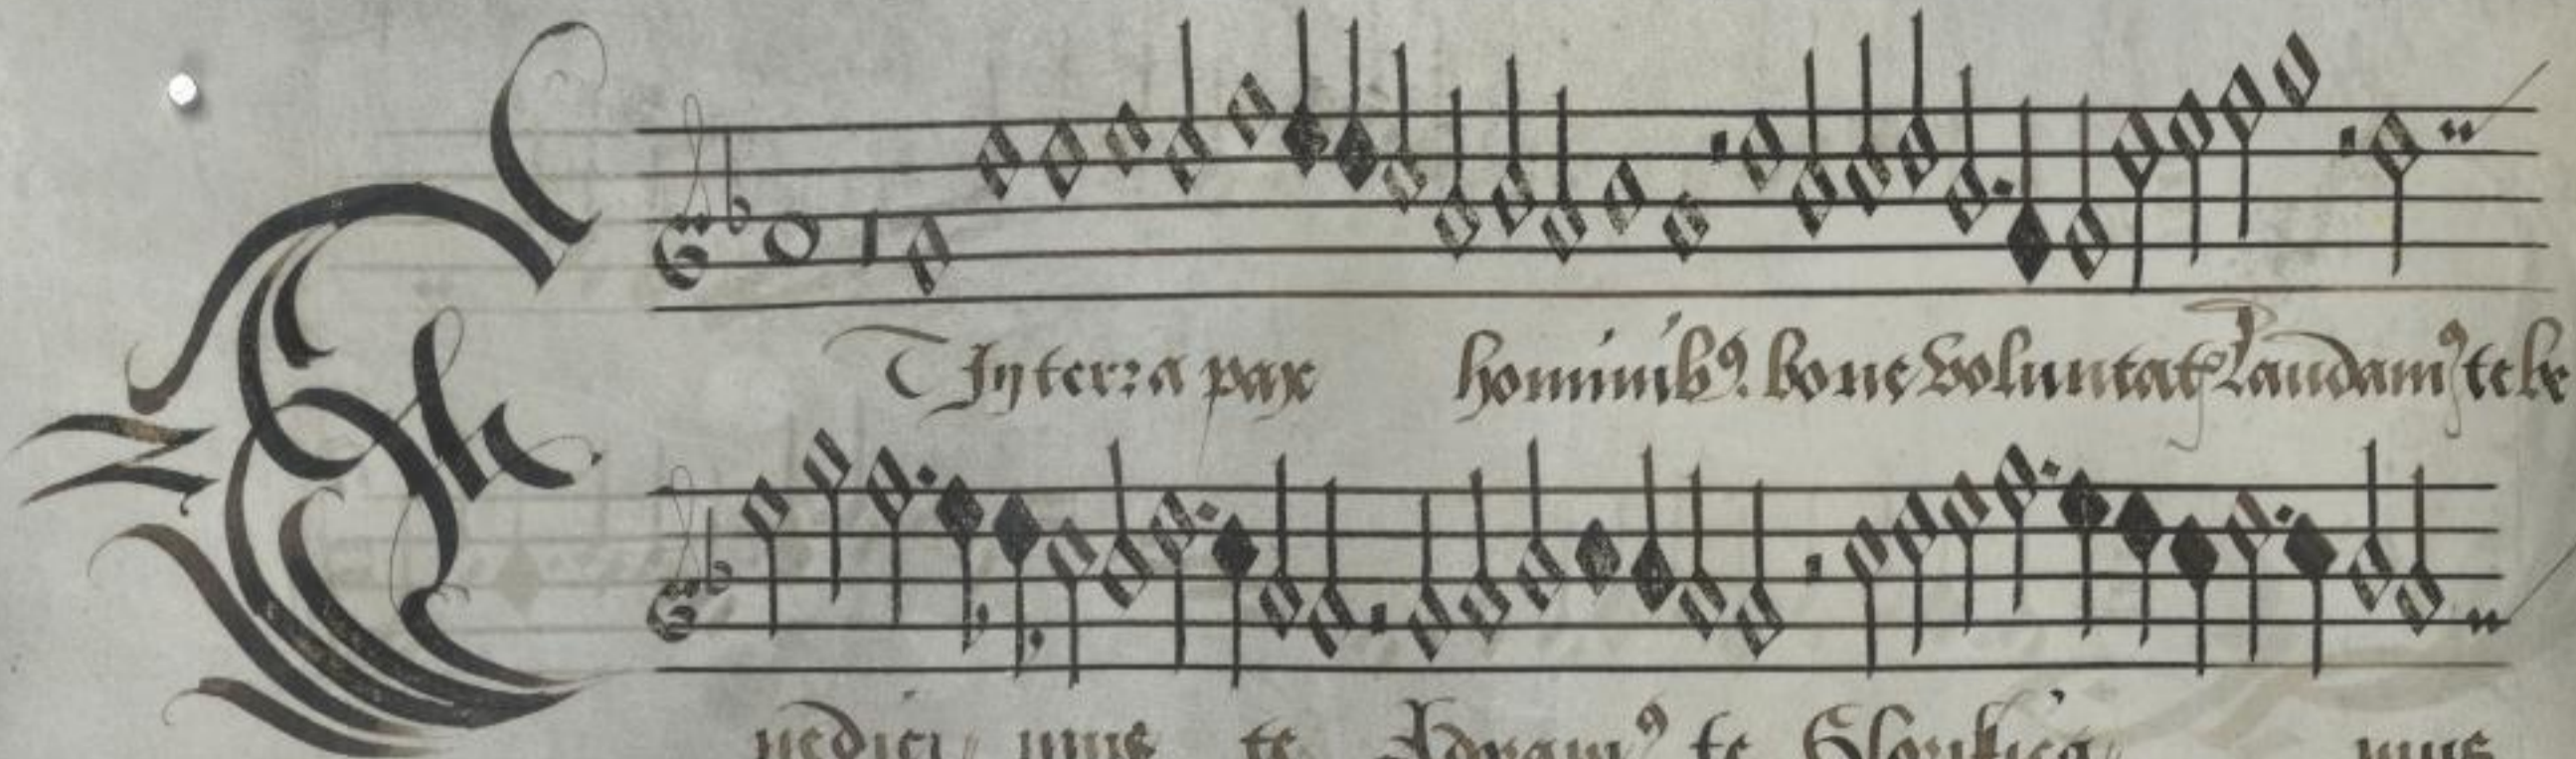 ET In terra pax hominibꝰ. bone voluntatꝭ Laudamꝰ te be
nedici mus te Adoramꝰ te Glorifica mus